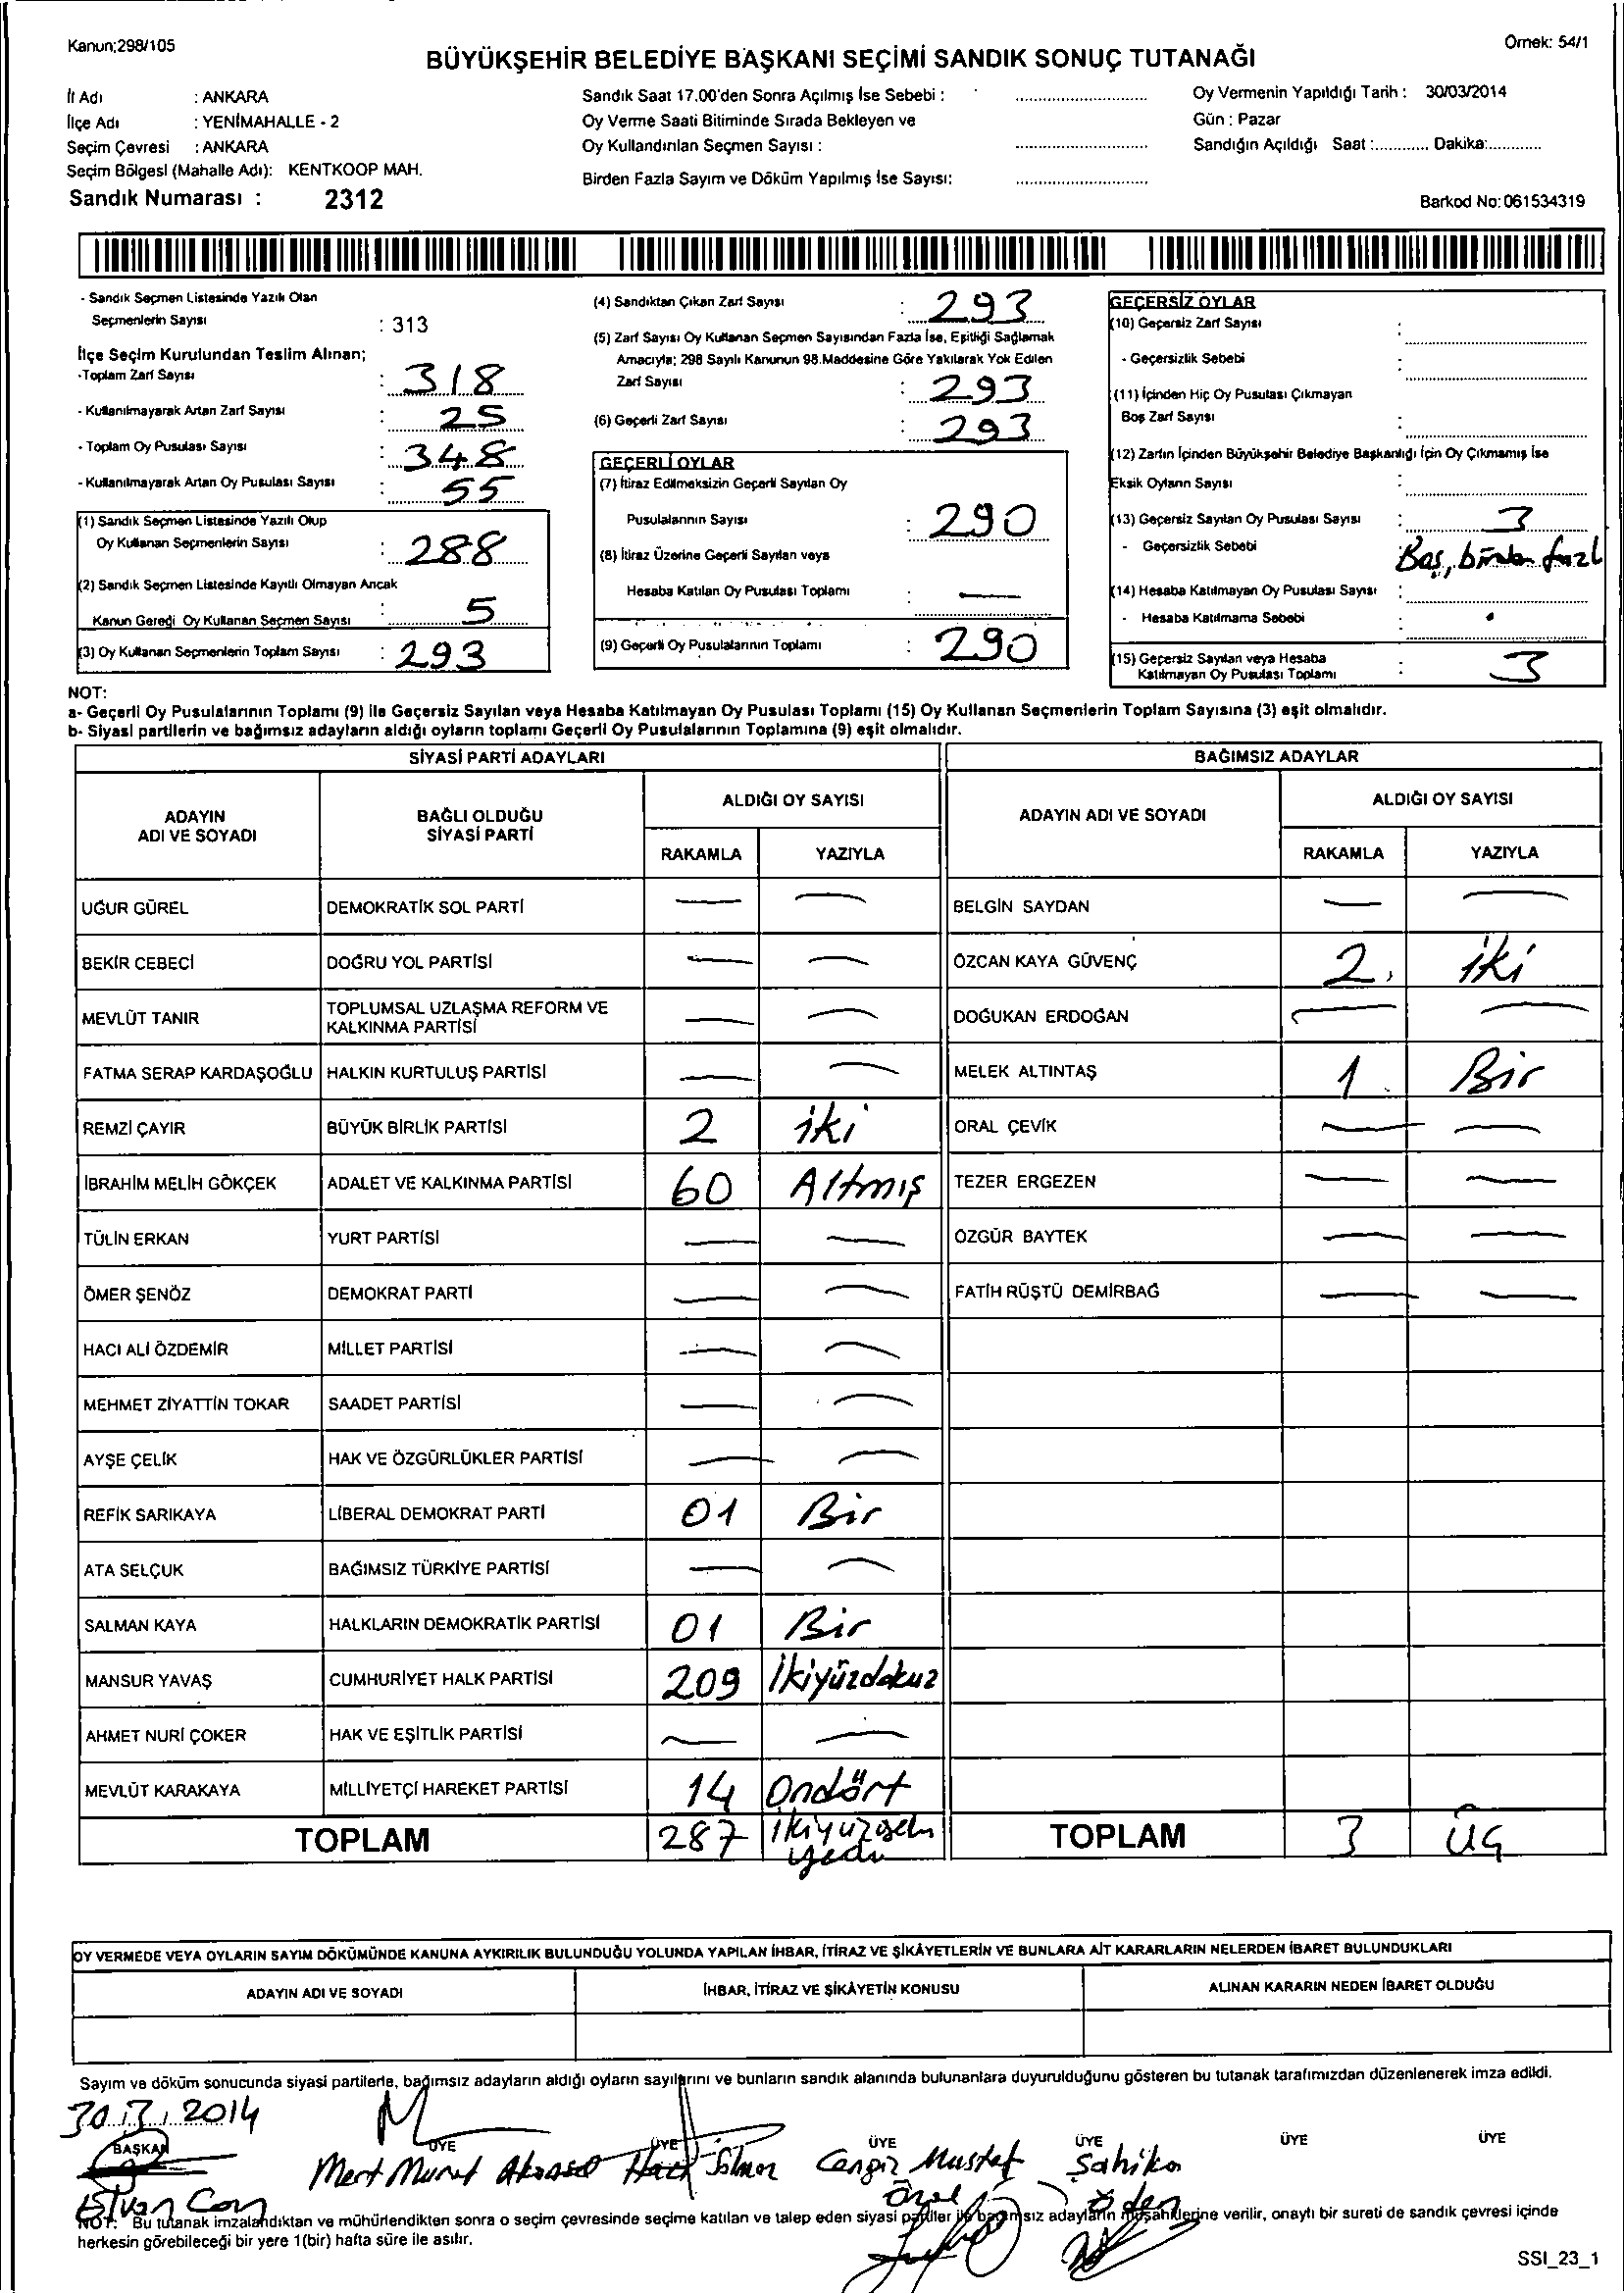 Kanun;298/105
Örnek: 54/1
BÜYÜKŞEHİR BELEDİYE BAŞKANI SEÇİMİ SANDIK SONUÇ TUTANAĞI
İl Adı : ANKARA
İlçe Adı : YENİMAHALLE - 2
Seçim Çevresi : ANKARA
Seçim Bölgesi (Mahalle Adı): KENTKOOP MAH.
Sandık Numarası : 2312
Sandık Saat 17.00'den Sonra Açılmış İse Sebebi :
Oy Verme Saati Bitiminde Sırada Bekleyen ve
Oy Kullandırılan Seçmen Sayısı :
Birden Fazla Sayım ve Döküm Yapılmış İse Sayısı:
Oy Vermenin Yapıldığı Tarih : 30/03/2014
Gün : Pazar
Sandığın Açıldığı Saat :............ Dakika:............
Barkod No: 061534319
- Sandık Seçmen Listesinde Yazılı Olan
Seçmenlerin Sayısı : 313
İlçe Seçim Kurulundan Teslim Alınan;
-Toplam Zarf Sayısı : 318
- Kullanılmayarak Artan Zarf Sayısı : 25
- Toplam Oy Pusulası Sayısı : 348
- Kullanılmayarak Artan Oy Pusulası Sayısı : 55
(1) Sandık Seçmen Listesinde Yazılı Olup
Oy Kullanan Seçmenlerin Sayısı : 288
(2) Sandık Seçmen Listesinde Kayıtlı Olmayan Ancak
Kanun Gereği Oy Kullanan Seçmen Sayısı : 5
(3) Oy Kullanan Seçmenlerin Toplam Sayısı : 293
(4) Sandıktan Çıkan Zarf Sayısı : 293
(5) Zarf Sayısı Oy Kullanan Seçmen Sayısından Fazla İse, Eşitliği Sağlamak
Amacıyla; 298 Sayılı Kanunun 98.Maddesine Göre Yakılarak Yok Edilen
Zarf Sayısı : 293
(6) Geçerli Zarf Sayısı : 293
GEÇERLİ OYLAR
(7) İtiraz Edilmeksizin Geçerli Sayılan Oy
Pusulalarının Sayısı : 290
(8) İtiraz Üzerine Geçerli Sayılan veya
Hesaba Katılan Oy Pusulası Toplamı : —
(9) Geçerli Oy Pusulalarının Toplamı : 290
GEÇERSİZ OYLAR
(10) Geçersiz Zarf Sayısı :
- Geçersizlik Sebebi :
(11) İçinden Hiç Oy Pusulası Çıkmayan
Boş Zarf Sayısı :
(12) Zarfın İçinden Büyükşehir Belediye Başkanlığı İçin Oy Çıkmamış İse
Eksik Oyların Sayısı :
(13) Geçersiz Sayılan Oy Pusulası Sayısı : 3
- Geçersizlik Sebebi : Boş, birden fazl
(14) Hesaba Katılmayan Oy Pusulası Sayısı :
- Hesaba Katılmama Sebebi :
(15) Geçersiz Sayılan veya Hesaba
Katılmayan Oy Pusulası Toplamı : 3
NOT:
a- Geçerli Oy Pusulalarının Toplamı (9) ile Geçersiz Sayılan veya Hesaba Katılmayan Oy Pusulası Toplamı (15) Oy Kullanan Seçmenlerin Toplam Sayısına (3) eşit olmalıdır.
b- Siyasi partilerin ve bağımsız adayların aldığı oyların toplamı Geçerli Oy Pusulalarının Toplamına (9) eşit olmalıdır.
SİYASİ PARTİ ADAYLARI
ADAYIN ADI VE SOYADI BAĞLI OLDUĞU SİYASİ PARTİ ALDIĞI OY SAYISI
RAKAMLA YAZIYLA
UĞUR GÜREL DEMOKRATİK SOL PARTİ — —
BEKİR CEBECİ DOĞRU YOL PARTİSİ — —
MEVLÜT TANIR TOPLUMSAL UZLAŞMA REFORM VE KALKINMA PARTİSİ — —
FATMA SERAP KARDAŞOĞLU HALKIN KURTULUŞ PARTİSİ — —
REMZİ ÇAYIR BÜYÜK BİRLİK PARTİSİ 2 iki
İBRAHİM MELİH GÖKÇEK ADALET VE KALKINMA PARTİSİ 60 Altmış
TÜLİN ERKAN YURT PARTİSİ — —
ÖMER ŞENÖZ DEMOKRAT PARTİ — —
HACI ALİ ÖZDEMİR MİLLET PARTİSİ — —
MEHMET ZİYATTİN TOKAR SAADET PARTİSİ — —
AYŞE ÇELİK HAK VE ÖZGÜRLÜKLER PARTİSİ — —
REFİK SARIKAYA LİBERAL DEMOKRAT PARTİ 01 Bir
ATA SELÇUK BAĞIMSIZ TÜRKİYE PARTİSİ — —
SALMAN KAYA HALKLARIN DEMOKRATİK PARTİSİ 01 Bir
MANSUR YAVAŞ CUMHURİYET HALK PARTİSİ 209 İkiyüzdokuz
AHMET NURİ ÇOKER HAK VE EŞİTLİK PARTİSİ — —
MEVLÜT KARAKAYA MİLLİYETÇİ HAREKET PARTİSİ 14 Ondört
TOPLAM 287
BAĞIMSIZ ADAYLAR
ADAYIN ADI VE SOYADI ALDIĞI OY SAYISI
RAKAMLA YAZIYLA
BELGİN SAYDAN — —
ÖZCAN KAYA GÜVENÇ 2 iki
DOĞUKAN ERDOĞAN — —
MELEK ALTINTAŞ 1 Bir
ORAL ÇEVİK — —
TEZER ERGEZEN — —
ÖZGÜR BAYTEK — —
FATİH RÜŞTÜ DEMİRBAĞ — —
TOPLAM 3 ÜÇ
OY VERMEDE VEYA OYLARIN SAYIM DÖKÜMÜNDE KANUNA AYKIRILIK BULUNDUĞU YOLUNDA YAPILAN İHBAR, İTİRAZ VE ŞİKÂYETLERİN VE BUNLARA AİT KARARLARIN NELERDEN İBARET BULUNDUKLARI
ADAYIN ADI VE SOYADI İHBAR, İTİRAZ VE ŞİKÂYETİN KONUSU ALINAN KARARIN NEDEN İBARET OLDUĞU
Sayım ve döküm sonucunda siyasi partilerle, bağımsız adayların aldığı oyların sayılarını ve bunların sandık alanında bulunanlara duyurulduğunu gösteren bu tutanak tarafımızdan düzenlenerek imza edildi.
30.3.2014
BAŞKAN ÜYE ÜYE ÜYE ÜYE ÜYE ÜYE
Mert Murat Cengiz Mustaf Şahika
Özel
NOT: Bu tutanak imzalandıktan ve mühürlendikten sonra o seçim çevresinde seçime katılan ve talep eden siyasi partiler ile bağımsız adayların müşahitlerine verilir, onaylı bir sureti de sandık çevresi içinde
herkesin görebileceği bir yere 1(bir) hafta süre ile asılır.
SSI_23_1